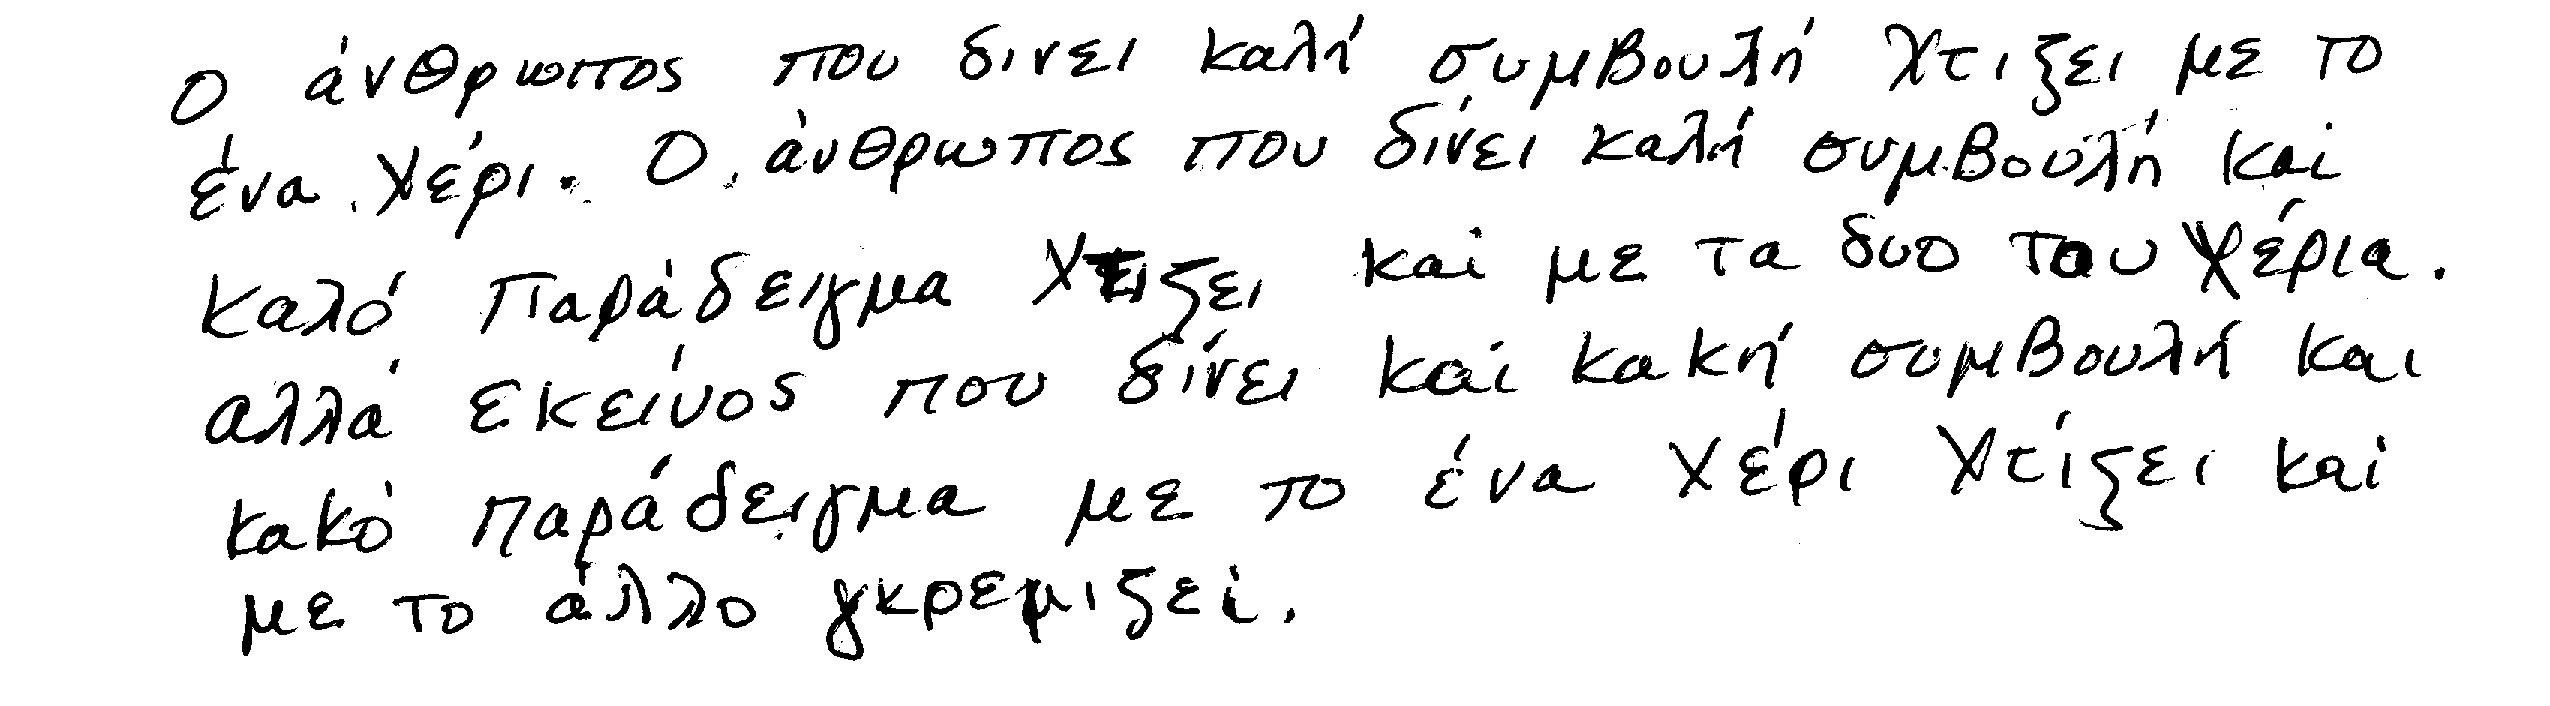 Ο άνθρωπος που δινει καλή συμβουλή χτιζει με το
ένα χέρι. Ο άνθρωπος που δίνει καλή συμβουλή και
καλό παράδειγμα χτιζει και με τα δυο του χέρια.
αλλά εκείνος που δίνει και κακή συμβουλή και
κακό παράδειγμα με το ένα χέρι χτίζει και
με το άλλο γκρεμιζει.